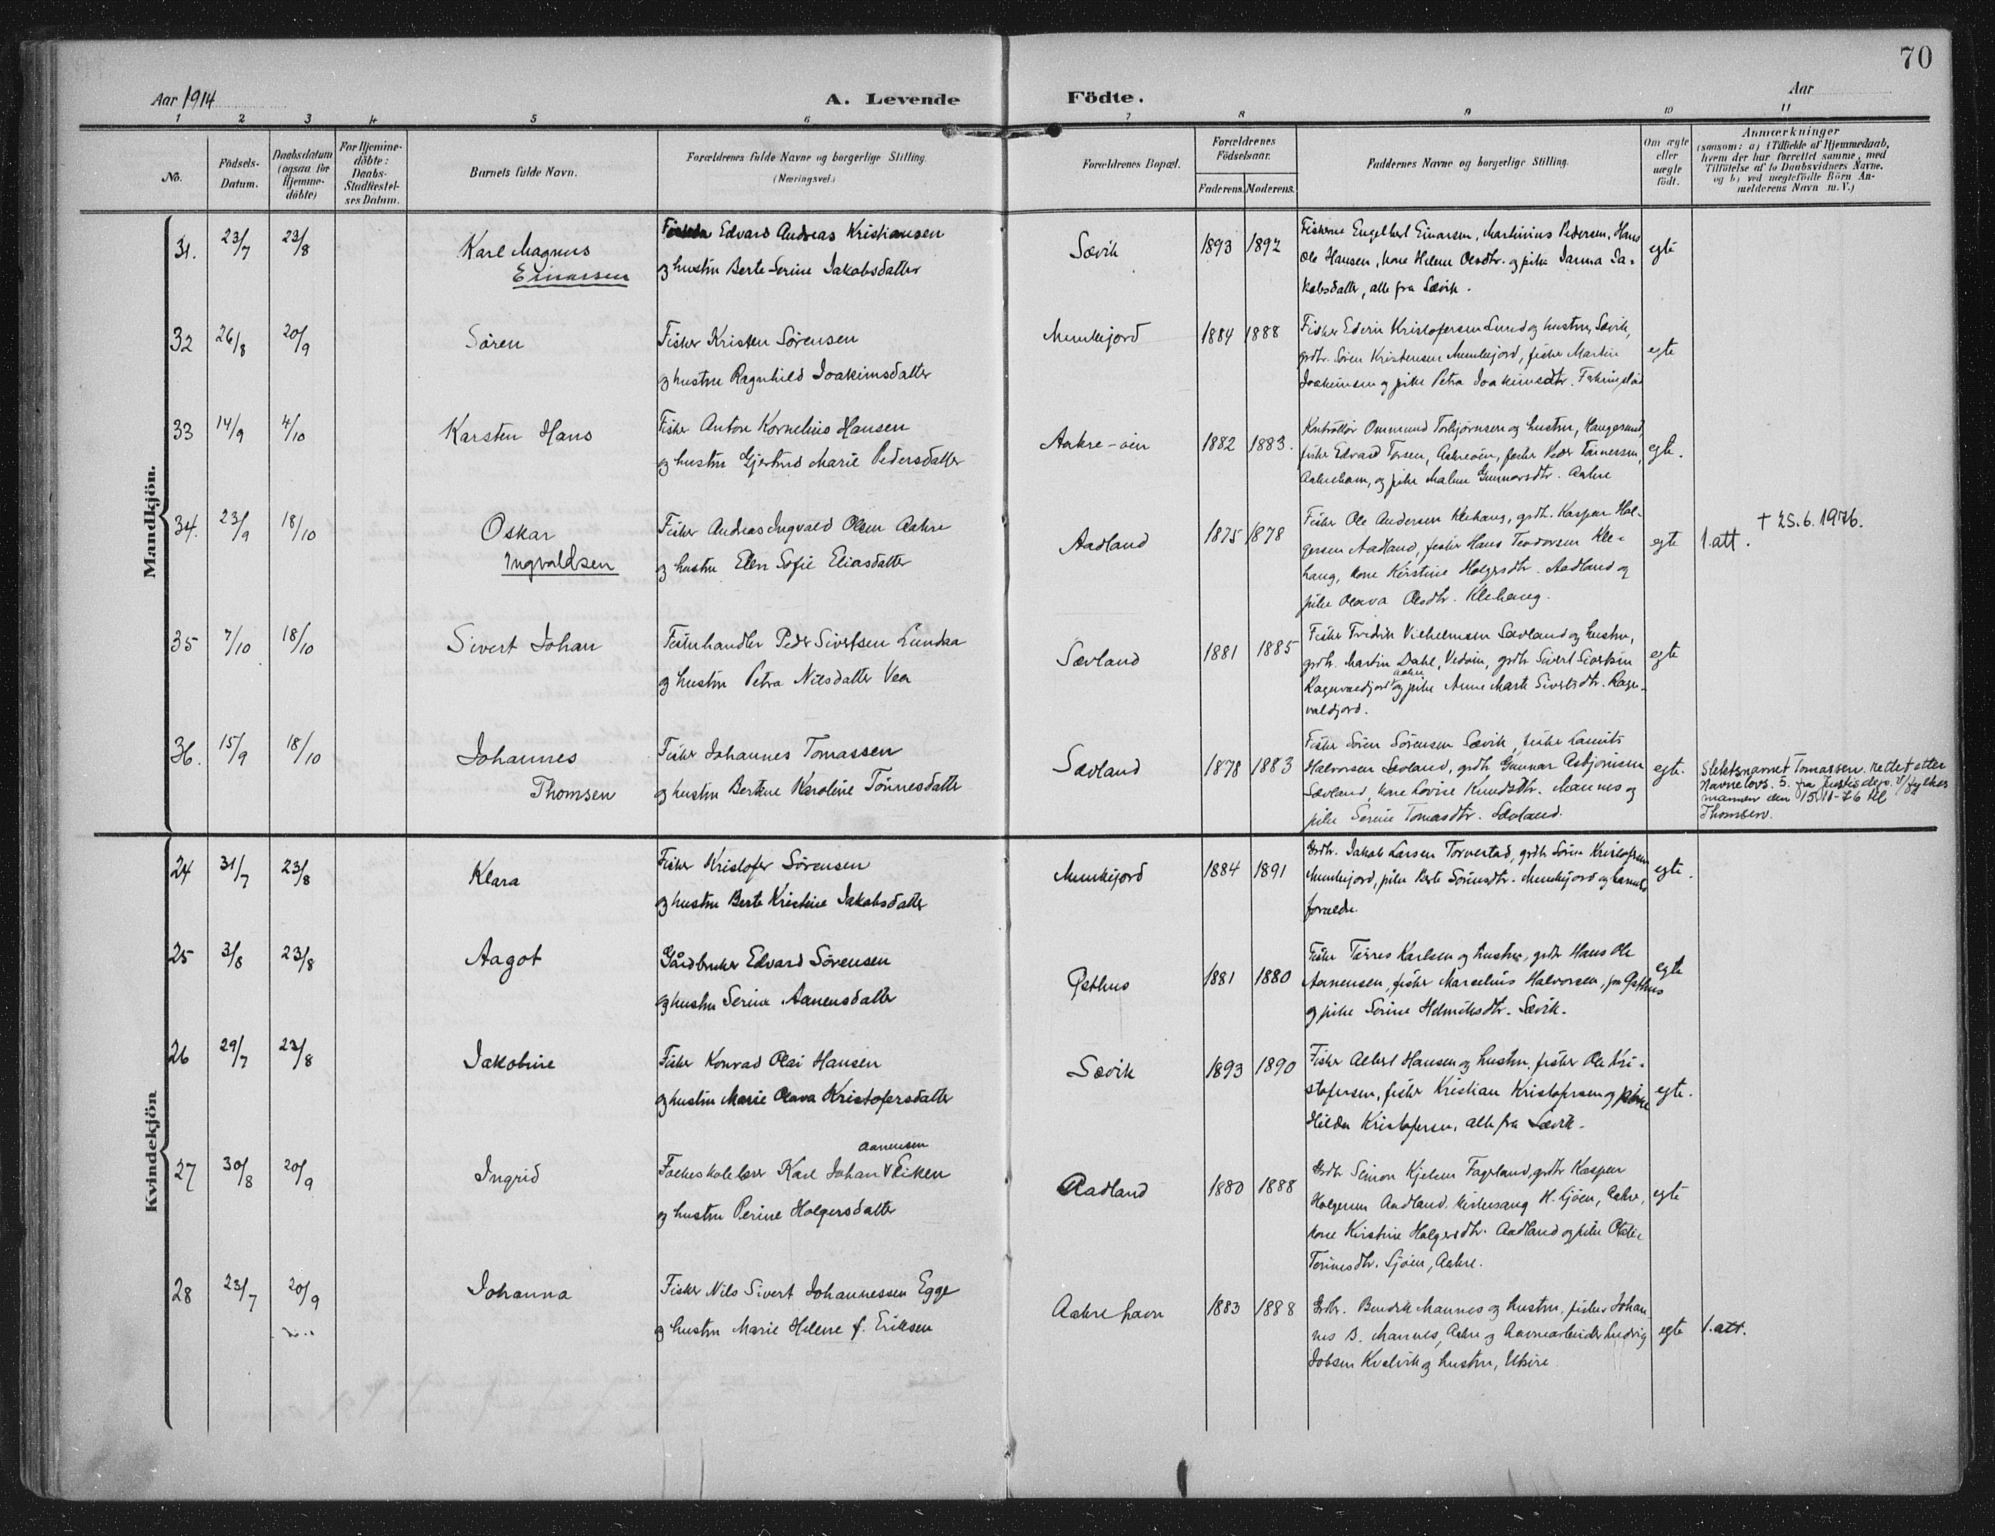 70
Aar 1914
A. Levende Födte.
Aar
1 2 3 4 5 6 7 8 9 10 11
No.
Födsels-
Datum.
Daabsdatum
(ogsaa for
Hjemme-
döbte)
For Hjemme-
döbte:
Daabs-
Stadfæstel-
ses Datum.
Barnets fulde Navn.
Forældrenes fulde Navne og borgerlige Stilling.
(Næringsvei.)
Forældrenes Bopæl.
Forældrenes
Födselsaar.
Faderens. Moderens.
Faddernes Navne og borgerlige Stilling.
Om ægte
eller
uægte
født.
Anmærkninger
(saasom: a) i Tilfælde af Hjemmedaab,
hvem der har forrettet samme, med
Tilföielse af to Daabsvidners Navne,
og b) ved uægtefödte Börn An-
melderens Navn m. V.)
Mandkjön.
31. 23/7 23/8 Karl Magnus
Einarsen
Edvard Andreas Kristiansen
og hustru Berte Serine Jakobsdatter
Sævik 1893 1892
Fiskerne Engelbert Einarsen, Martinius Pedersen, Hans
Ole Hansen, kone Helene Olsdtr. og pike Janna Ja-
kobsdatter, alle fra Sævik.
egte
32 26/8 20/9 Søren
Fisker Kristen Sørensen
og hustru Ragnhild Joakimsdatter
Munkejord 1884 1888
Fisker Edvin Kristofersen Lund og hustru, Sævik,
grdbr. Søren Kristensen Munkejord, fisker Martin
Joakimsen og pike Petra Joakimsdtr.
egte
33 14/9 4/10 Karsten Hans
Fisker Anton Kornelius Hansen
og hustru Gjertrud Marie Pedersdatter
Aakre-øen 1882 1883.
Kontrollør Ommund Torbjørnsen og hustru, Haugesund,
fisker Edvard Torsen, Aakreøen, fisker Peder Tønnessen,
Aakrehavn, og pike Malene Gunnarsdtr. Aakre
egte.
34. 23/9 18/10 Oskar
Ingvaldsen
Fisker Andreas Ingvald Olsen Aakre
og hustru Elen Sofie Eliasdatter
Aadland 1875 1878
Fisker Ole Andersen Klehaug, grdbr. Kasper Hol-
gersen Aadland, fisker Hans Teodorsen Kle-
haug, kone Kirstine Holgersdtr. Aadland og
pike Olava Olsdtr. Klehaug.
egte 1. att. † 25.6.1976.
35 7/10 18/10 Sivert Johan
Fiskehandler Peder Sivertsen Lunda
og hustru Petra Nilsdatter Vea
Sævland 1881 1885
Fisker Fredrik Vilhelmsen Sævland og hustru,
grdbr. Martin Dahl, Vedøen, grdbr Sivert Sivertsen
Ragnvaldjord og pike Anne Marte Sivertsdtr. Ragn-
valdjord.
egte
36. 15/9 18/10 Johannes
Thomsen
Fisker Johannes Tomassen
og hustru Bertine Karoline Tønnesdatter
Sævland 1878 1883
Fisker Søren Sørensen Sævik, fisker Laurits
Halvorsen Sævland, grdbr Gunnar Asbjørnsen
Sævland, kone Lovise Knudsdtr. Mannes og
pike Serine Tomasdtr. Sævland.
egte.
Slektsnavnet Tomassen rettet etter
Navnelovs. 5. fra Justisdep. v/fylkes
mannen den 15/11-76 til
Thomsen.
Kvindekjön
24 31/7 23/8 Klara
Fisker Kristofer Sørensen
og hustru Berte Kristine Jakobsdatter
Munkejord 1884 1891
Grdbr. Jakob Larsen Torvestad, grdbr Søren Kristofersen
Munkejord, pike Berte Sørensdtr. Munkejord og barnets
forældre.
egte.
25 3/8 23/8 Aagot
Gårdbruker Edvard Sørensen
og hustru Serine Aanensdatter
Østhus 1881 1880
Fisker Tørres Karlsen og hustru, grdbr Hans Ole
Aanensen, fisker Marselius Halvorsen, fra Østhus
og pike Serine Helmiksdtr. Sævik.
egte
26 29/7 23/8 Jakobine
Fisker Konrad Olai Hansen
og hustru Marie Olava Kristofersdatter
Sævik 1893 1890
Fisker Albert Hansen og hustru, fisker Ole Kri-
stofersen, fisker Kristian Kristofersen og pike
Hilda Kristofersen, alle fra Sævik.
egte.
27 30/8 20/9 Ingrid
Aanensen
Folkeskolelærer Karl Johan Eiken
og hustru Perine Holgersdatter
Aadland 1880 1888
Grdbr Simon Kjelsen Fagerland, grdbr Kasper
Holgersen Aadland, kirkesang. H. Sjøen, Aakre,
kone Kirstine Holgersdtr. Aadland og pike
Tønnesdtr. Sjøen, Aakre.
egte
28 23/7 20/9 Johanna
Fisker Nils Sivert Johannessen Egge
og hustru Marie Helene f. Eriksen
Aakrehavn 1883 1888
Grdbr. Bendik Mannes og hustru, fisker Johan-
nes B. Mannes, Aakre og havnearbeider Ludvig
Jobsen Kvalvik og hustru, Utsire.
egte 1. att.